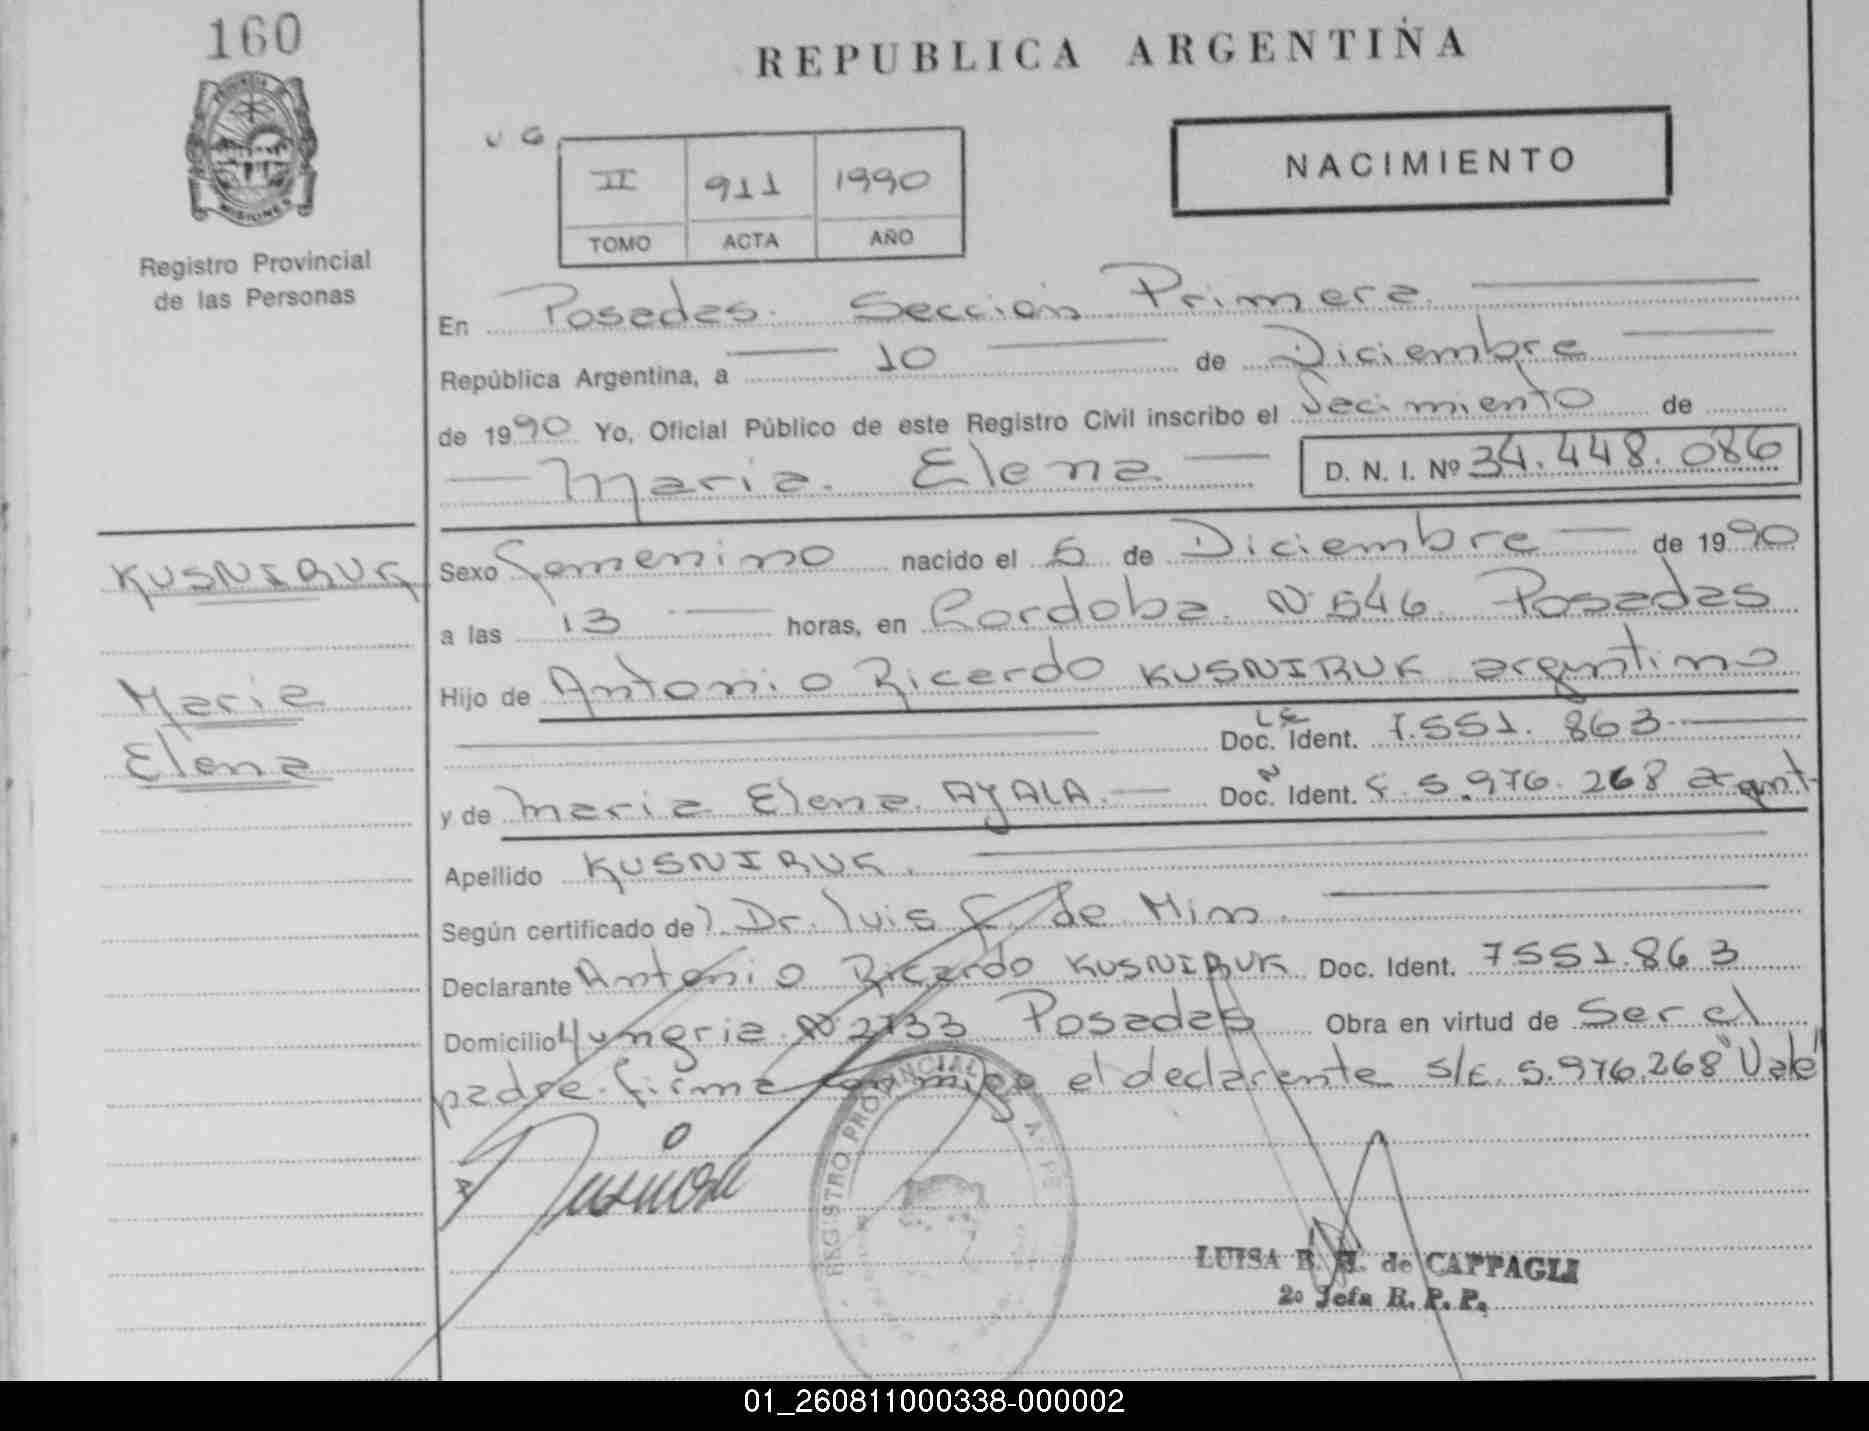 160
REPUBLICA ARGENTINA
MISIONES
Registro Provincial
de las Personas
NACIMIENTO
II 911 1990
TOMO ACTA AÑO
En Posadas. Sección Primera.
República Argentina, a 10 de Diciembre
de 1990 Yo, Oficial Público de este Registro Civil inscribo el Nacimiento de
Maria Elena D. N. I. Nº 34.448.086
KUSNIRUK
Maria
Elena
Sexo Femenino nacido el 5 de Diciembre de 1990
a las 13 horas, en Cordoba Nº 546 Posadas
Hijo de Antonio Ricardo KUSNIRUK argentino
LE
Doc. Ident. 7.551.863
y de Maria Elena AYALA Doc. Ident. F. 5.976.268 argnt
Apellido KUSNIRUK.
Según certificado de Dr. Luis F. de
Declarante Antonio Ricardo KUSNIRUK Doc. Ident. 7551.863
Domicilio Hungria Nº 2733 Posadas Obra en virtud de Ser el
padre. firma conmigo el declarente s/E. 5.976.268 "Vale"
REGISTRO PROVINCIAL
LUISA B. H. de CAPPAGLI
2º Jefa R. P. P.
01_260811000338-000002